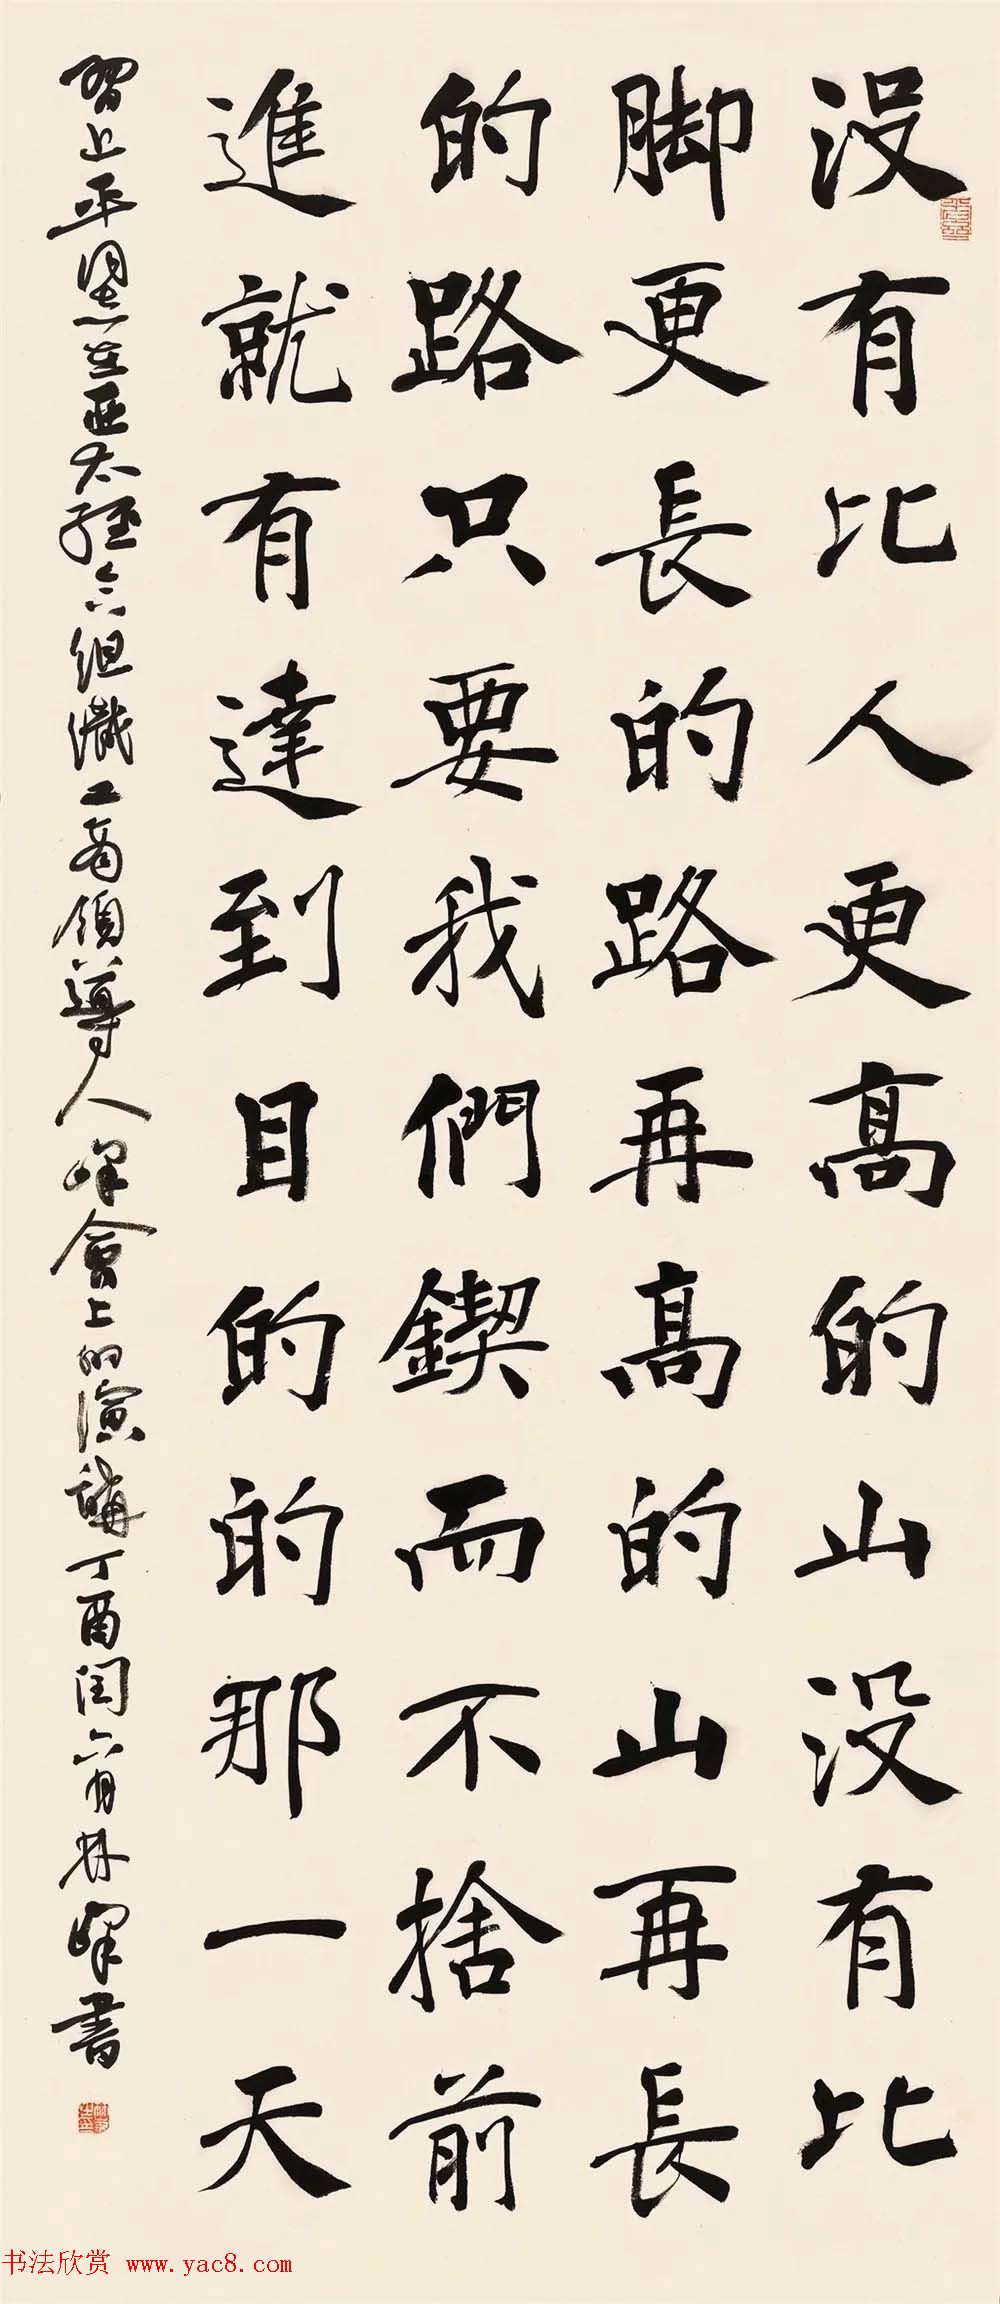 没有比人更高的山没有比
脚更長的路再高的山再長
的路只要我們鍥而不捨前
進就有達到目的的那一天
習近平同志在亞太經合組織工商領導人峰會上的演講丁酉閏六月林峰書
书法欣赏 www.yac8.com